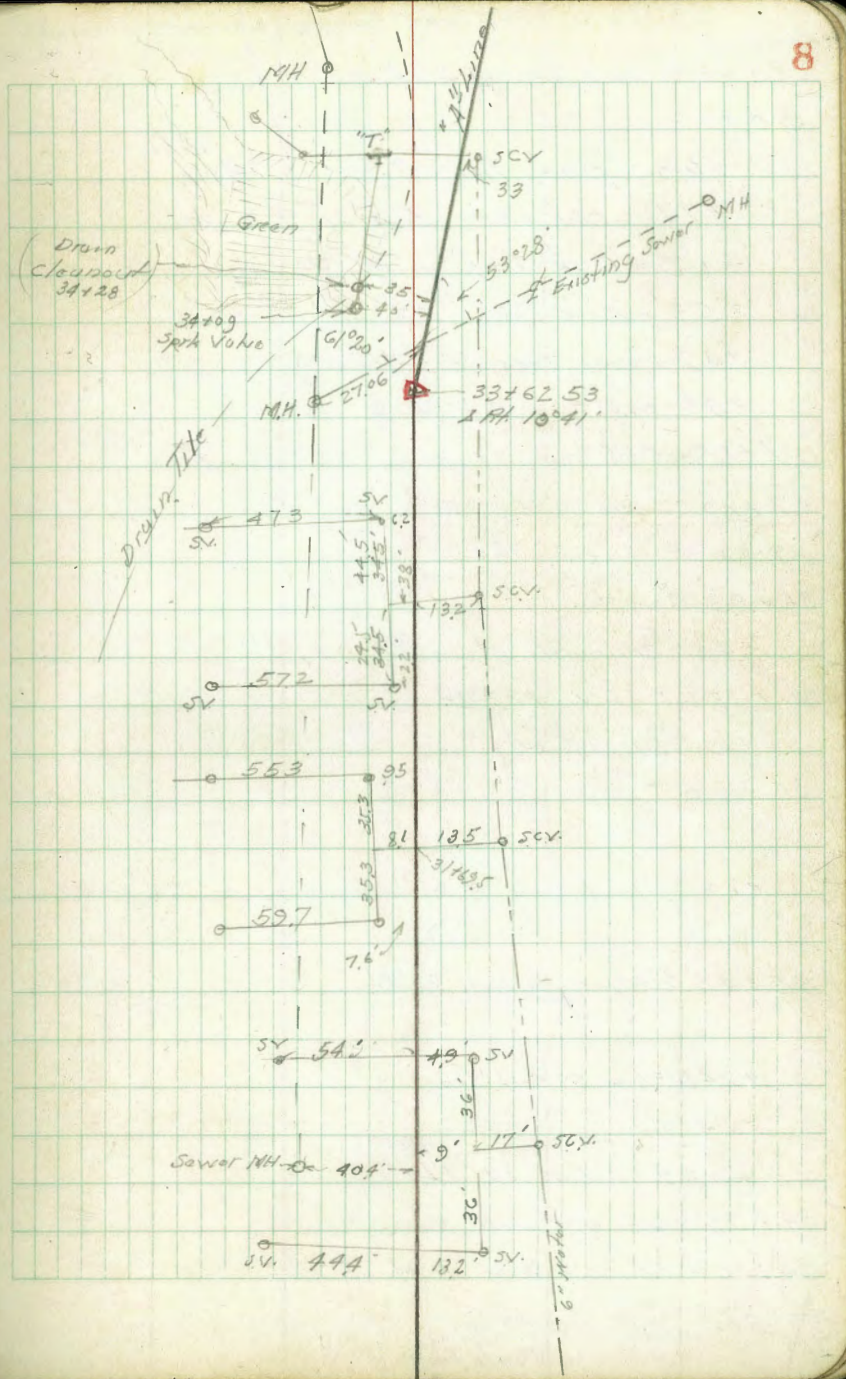 8
MH
"A" Line
"T"
SCV
33
MH
Green
Drain
Cleanout
34+28
53°28'
℄ Existing Sewer
35
40'
34+09
Sprk Valve
61°20'
27.06
M.H.
33+62.53
Δ Rt. 10°41'
Drain Tile
SV
473
6.2
S.V.
44.5'
34.5'
38'
13.2
S.C.V.
24.5
34.5
22'
572
S.V.
S.V.
553
9.5
35.3
8.1
13.5
S.C.V.
31+69.5
35.3
59.7
7.6'
SV
54'
4.9'
SV
36'
9'
17'
SCV.
Sewer MH
40.4'
36'
S.V.
44.4
13.2'
SV.
6" Water